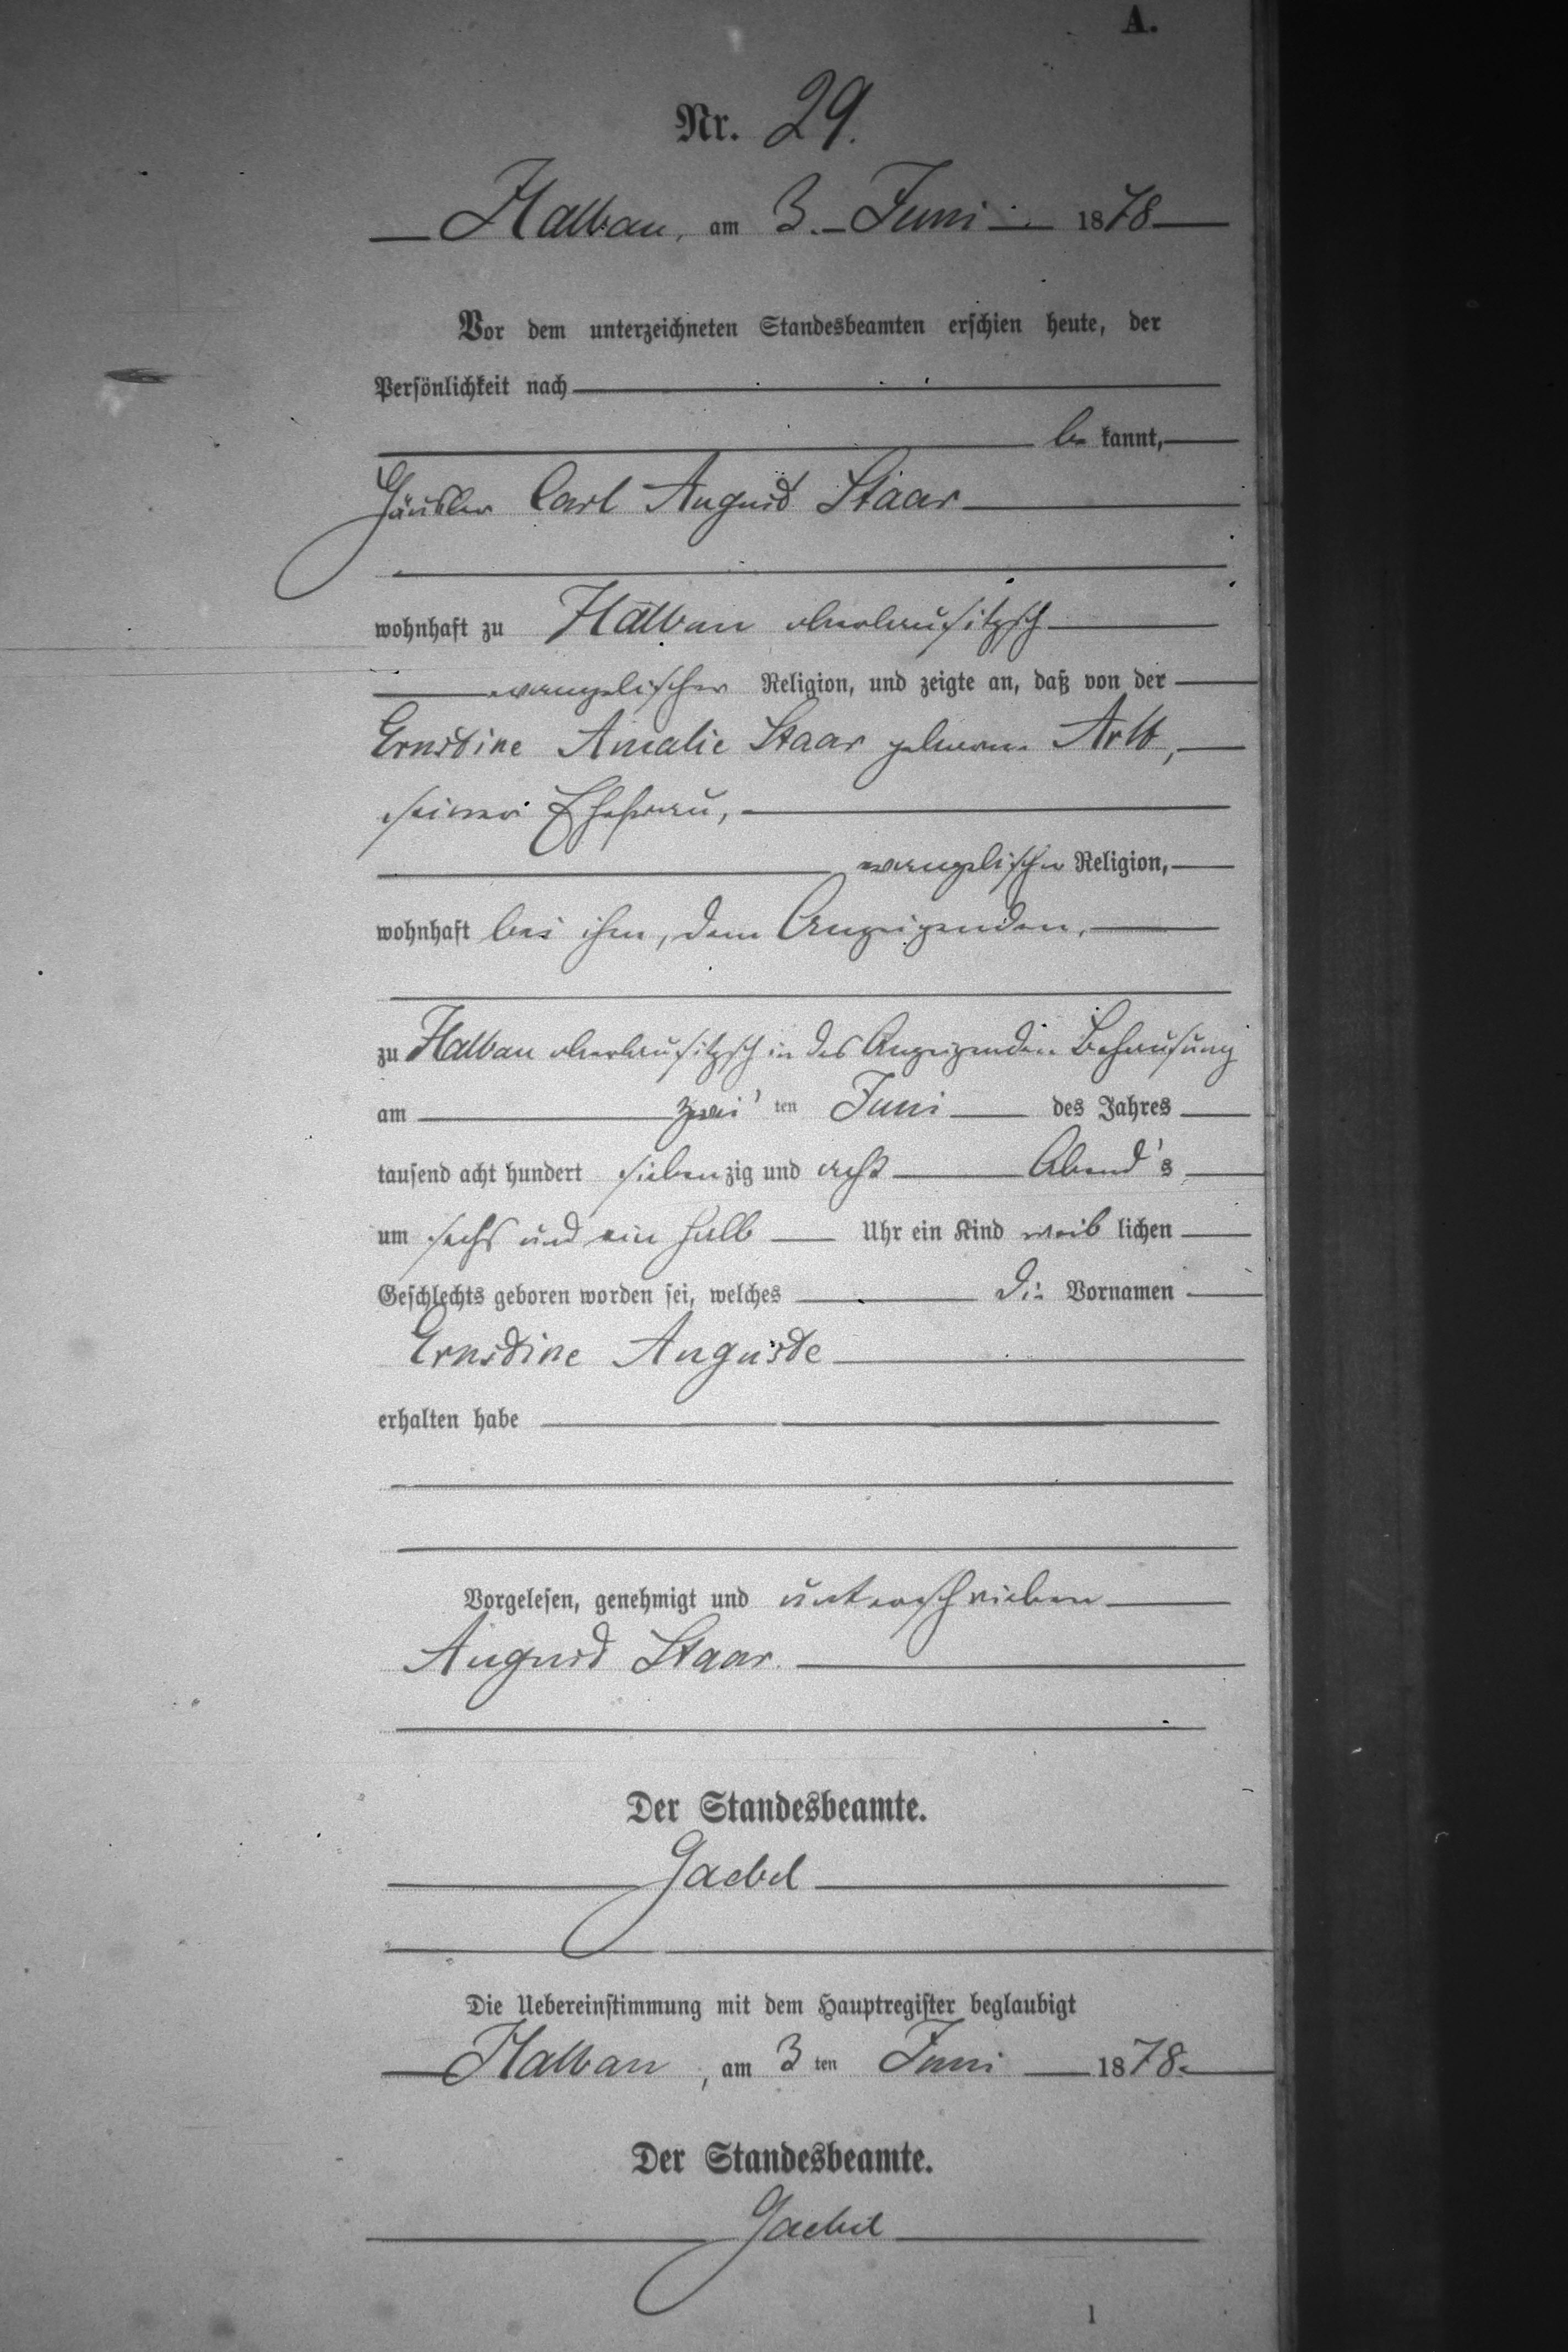 A.
Nr. 29.
Halbau, am 3. Juni 1878
Vor dem unterzeichneten Standesbeamten erschien heute, der
Persönlichkeit nach
be kannt,
Häusler Carl August Staar
wohnhaft zu Halbau oberlausitzsch
evangelischer Religion, und zeigte an, daß von der
Ernstine Amalie Staar geborne Arlt,
seiner Ehefrau,
evangelischer Religion,
wohnhaft bei ihm, dem Anzeigenden,
zu Halbau oberlausitzsch in des Anzeigenden Behausung
am zwei ten Juni des Jahres
tausend acht hundert siebenzig und acht Abend's
um sechs und ein halb Uhr ein Kind weib lichen
Geschlechts geboren worden sei, welches die Vornamen
Ernstine Auguste
erhalten habe
Vorgelesen, genehmigt und unterschrieben
August Staar.
Der Standesbeamte.
Gaebel
Die Uebereinstimmung mit dem Hauptregister beglaubigt
Halbau, am 3 ten Juni 1878.
Der Standesbeamte.
Gaebel
1